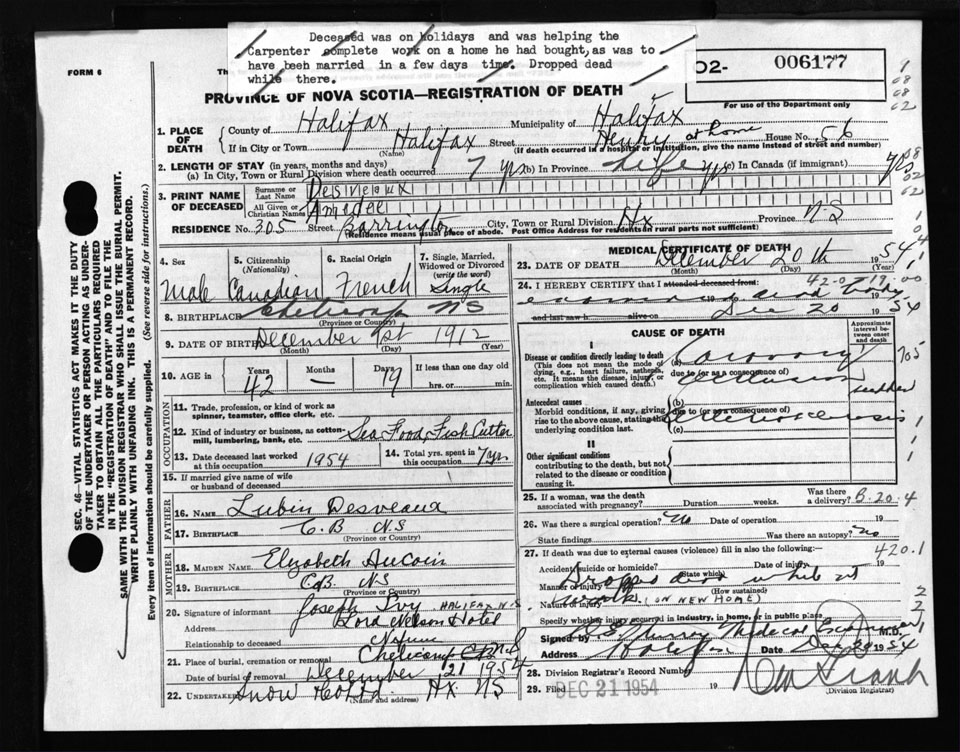 Deceased was on holidays and was helping the
Carpenter complete work on a home he had bought, as was to
have been married in a few days time. Dropped dead
while there.
FORM 6
Th
O2- 006177
For use of the Department only
PROVINCE OF NOVA SCOTIA—REGISTRATION OF DEATH
1. PLACE OF DEATH
County of Halifax Municipality of Halifax
If in City or Town Halifax (Name) Street Henry at home House No. 56
(If death occurred in a hospital or institution, give the name instead of street and number)
2. LENGTH OF STAY (in years, months and days)
(a) In City, Town or Rural Division where death occurred 7 yrs (b) In Province life yrs (c) In Canada (if immigrant) yrs
3. PRINT NAME OF DECEASED
Surname or Last Name Desveaux
All Given or Christian Names Amedee
RESIDENCE No. 305 Street Barrington City, Town or Rural Division Hx Province NS
(Residence means usual place of abode. Post Office Address for residents in rural parts not sufficient)
4. Sex Male
5. Citizenship (Nationality) Canadian
6. Racial Origin French
7. Single, Married, Widowed or Divorced (write the word) Single
8. BIRTHPLACE NS
(Province or Country)
9. DATE OF BIRTH December 1st 1912
(Month) (Day) (Year)
10. AGE in Years 42 Months — Days 19 If less than one day hrs. or min.
OCCUPATION
11. Trade, profession, or kind of work as spinner, teamster, office clerk, etc.
12. Kind of industry or business, as cotton-mill, lumbering, bank, etc. Sea Food, Fish Cutter
13. Date deceased last worked at this occupation 1954
14. Total yrs. spent in this occupation 7 yrs
15. If married give name of wife or husband of deceased
FATHER
16. NAME Lubin Desveaux
17. BIRTHPLACE C.B. N.S
(Province or Country)
MOTHER
18. MAIDEN NAME Elizabeth AuCoin
19. BIRTHPLACE C.B. NS
(Province or Country)
20. Signature of informant Joseph Ivy HALIFAX N.S.
Address Lord Nelson Hotel
Relationship to deceased
21. Place of burial, cremation or removal Cheticamp
Date of burial or removal December 21 1954
22. UNDERTAKER Snow Hx NS
(Name and address)
MEDICAL CERTIFICATE OF DEATH
23. DATE OF DEATH December 20th 1954
(Month) (Day) (Year)
24. I HEREBY CERTIFY that I attended deceased from:
and last saw h alive on Dec 20 1954
CAUSE OF DEATH
Approximate interval between onset and death
I
Disease or condition directly leading to death
(This does not mean the mode of dying, e.g., heart failure, asthenia, etc. It means the disease, injury or complication which caused death.)
(a) Coronary
due to (or as a consequence of)
occlusion sudden
Antecedent causes
Morbid conditions, if any, giving rise to the above cause, stating the underlying condition last.
(b)
due to (or as a consequence of)
(c)
II
Other significant conditions
contributing to the death, but not related to the disease or condition causing it.
25. If a woman, was the death associated with pregnancy? Duration weeks. Was there a delivery?
26. Was there a surgical operation? No Date of operation 19
State findings Was there an autopsy? No
27. If death was due to external causes (violence) fill in also the following:— 420.1
Accident, suicide or homicide? (State which) Date of injury 19
Manner of injury Dropped dead while at
(How sustained)
Nature of injury work (ON NEW HOME)
Specify whether injury occurred in industry, in home, or in public place
Signed by Murray Medical Examiner M.D.
Address Halifax Date Dec 20 1954
28. Division Registrar's Record Number
29. Filed DEC 21 1954 19
(Division Registrar)
SEC. 46—VITAL STATISTICS ACT MAKES IT THE DUTY
OF THE UNDERTAKER OR PERSON ACTING AS UNDER-
TAKER TO OBTAIN ALL THE PARTICULARS REQUIRED
IN THE "REGISTRATION OF DEATH" AND TO FILE THE
SAME WITH THE DIVISION REGISTRAR WHO SHALL ISSUE THE BURIAL PERMIT.
WRITE PLAINLY WITH UNFADING INK. THIS IS A PERMANENT RECORD.
Every item of information should be carefully supplied. (See reverse side for instructions.)